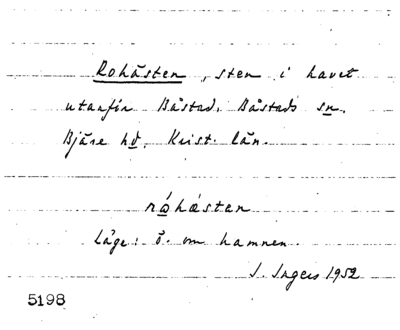 Rohästen, sten i havet
utanför Båstad. Båstads sn.
Bjäre hd. Krist. län.
rǿhæsten
Läge: ö. om hamnen.
I. Ingers 1952
5198